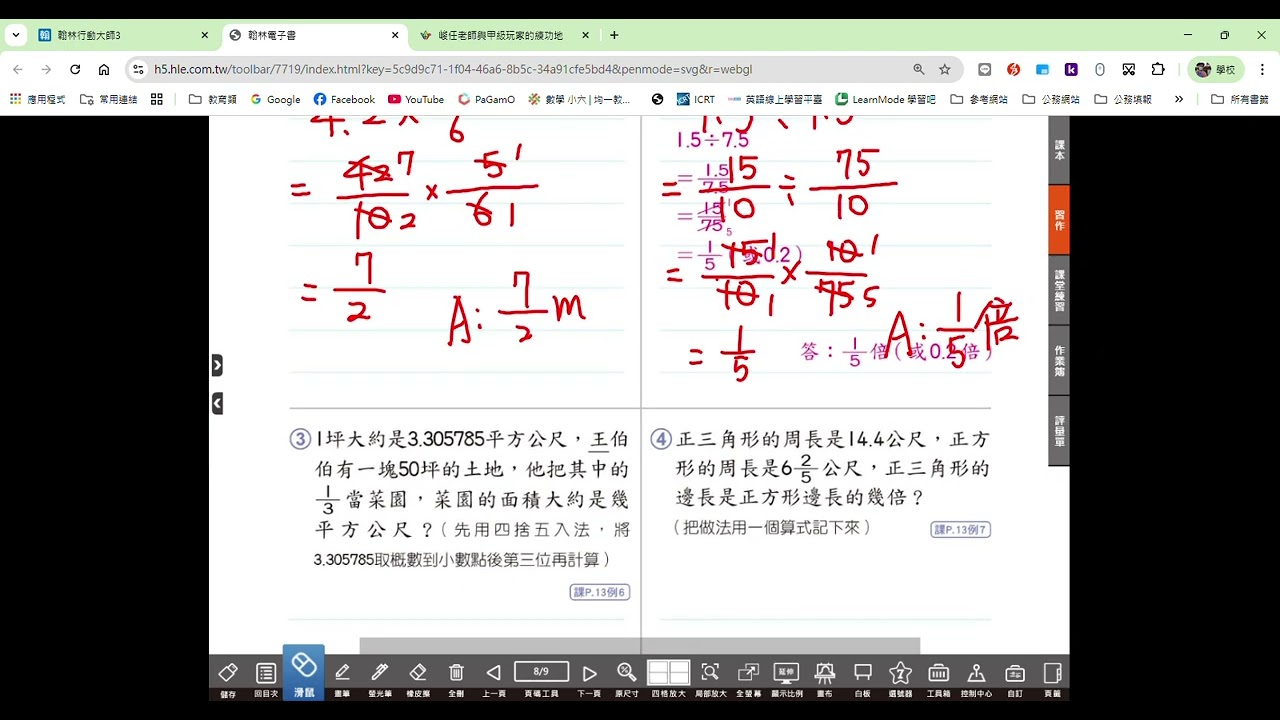 翰林行動大師3
翰林電子書
峻任老師與甲級玩家的練功地
h5.hle.com.tw/toolbar/7719/index.html?key=5c9d9c71-1f04-46a6-8b5c-34a91cfe5bd4&penmode=svg&r=webgl
學校
應用程式 常用連結 教育類 Google Facebook YouTube PaGamO 數學 小六 | 均一教... ICRT 英語線上學習平臺 LearnMode 學習吧 參考網站 公務網站 公務填報 » 所有書籤
= 42 7/10 2 × 5 1/6 1
= 7/2
A: 7/2 m
1.5÷7.5
= 1.5/7.5
= 15/75 5
= 1/5 (或0.2)
= 15/10 ÷ 75/10
= 15 1/10 1 × 10 1/75 5
= 1/5
A: 1/5 倍
答：1/5倍(或0.2倍)
③ 1坪大約是3.305785平方公尺，王伯
伯有一塊50坪的土地，他把其中的
1/3當菜園，菜園的面積大約是幾
平方公尺？(先用四捨五入法，將
3.305785取概數到小數點後第三位再計算)
課P.13例6
④ 正三角形的周長是14.4公尺，正方
形的周長是6 2/5公尺，正三角形的
邊長是正方形邊長的幾倍？
(把做法用一個算式記下來)
課P.13例7
課本
習作
課堂練習
作業簿
評量單
8/9
延伸
儲存 回目次 滑鼠 畫筆 螢光筆 橡皮擦 全刪 上一頁 頁碼工具 下一頁 原尺寸 四格放大 局部放大 全螢幕 顯示比例 畫布 白板 選號器 工具箱 控制中心 自訂 頁籤